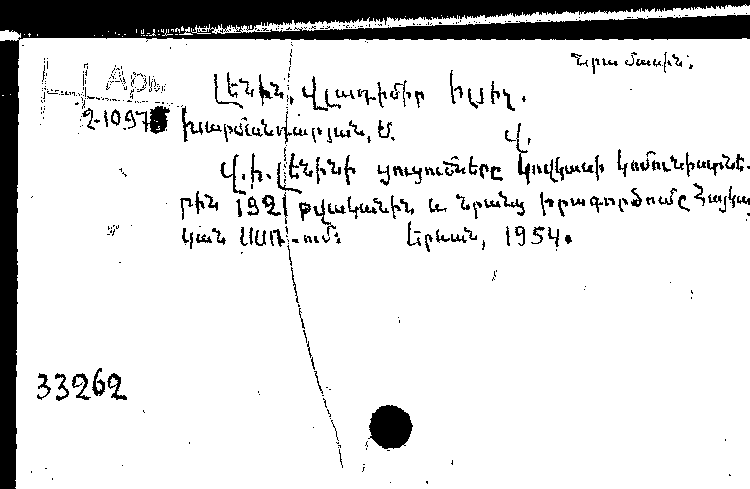 Նրա մասին.
Арм.
Լենին, Վլադիմիր Իլիչ.
2-1097
Խաչմանուկյան, Ե. Վ.
Վ. Ի. Լենինի ցուցումները Կովկասի կոմունիստնե-
րին 1921 թվականին և նրանց իրագործումը Հայկա
կան ՍՍՌ-ում: Երևան, 1954.
33262